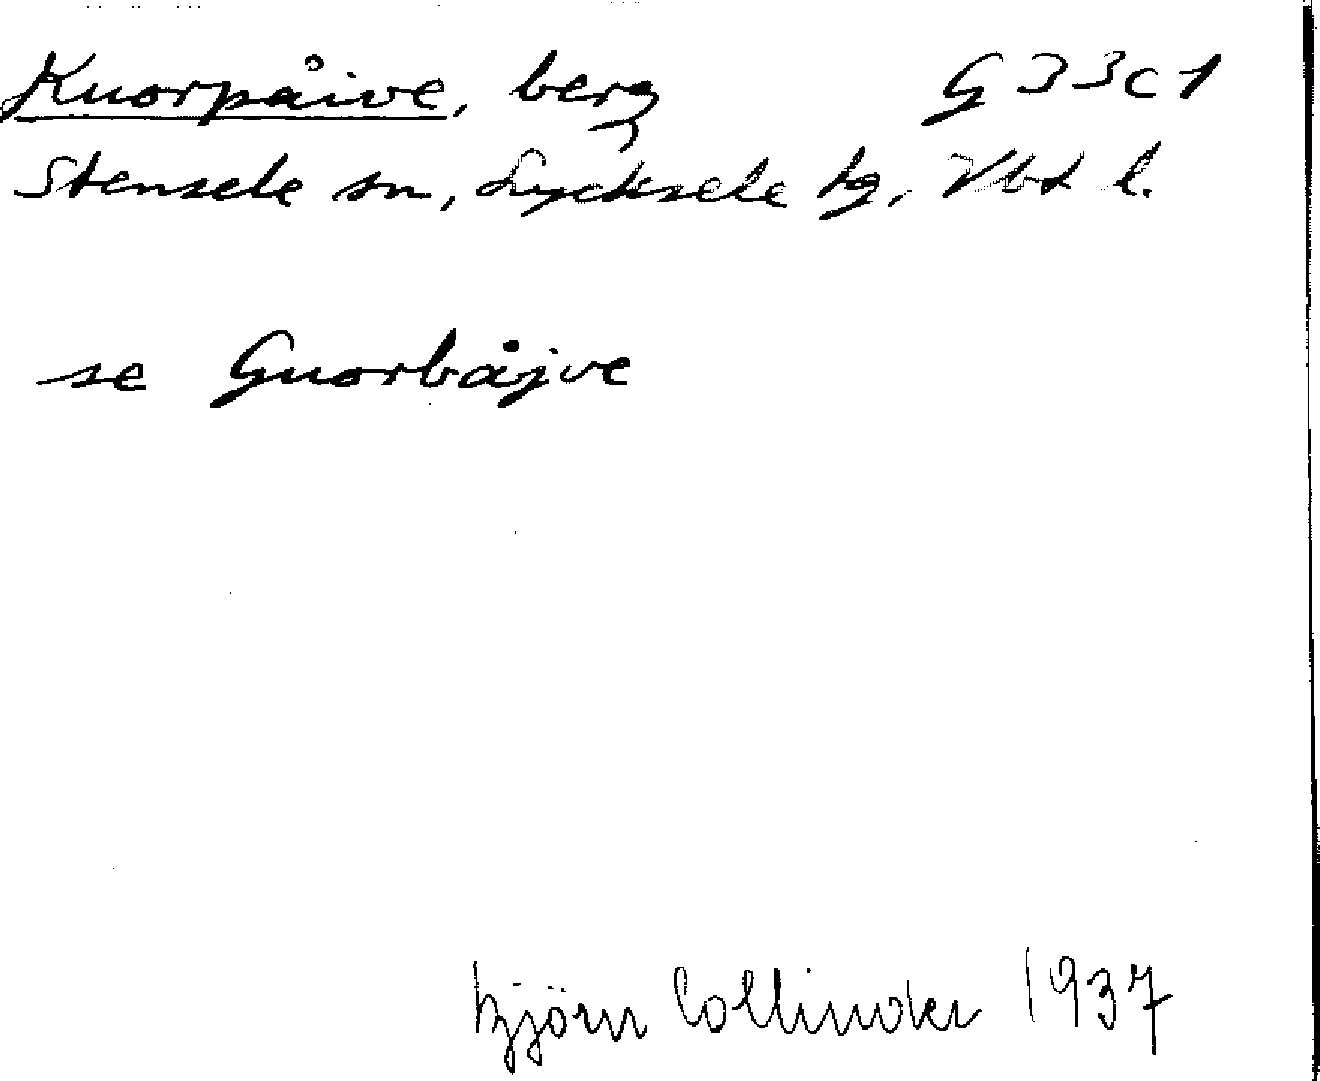 Kuorpåive, berg G 33c1
Stensele sn, Lycksele lg, Vbt l.
se Guorbåjve
Björn Collinder 1937